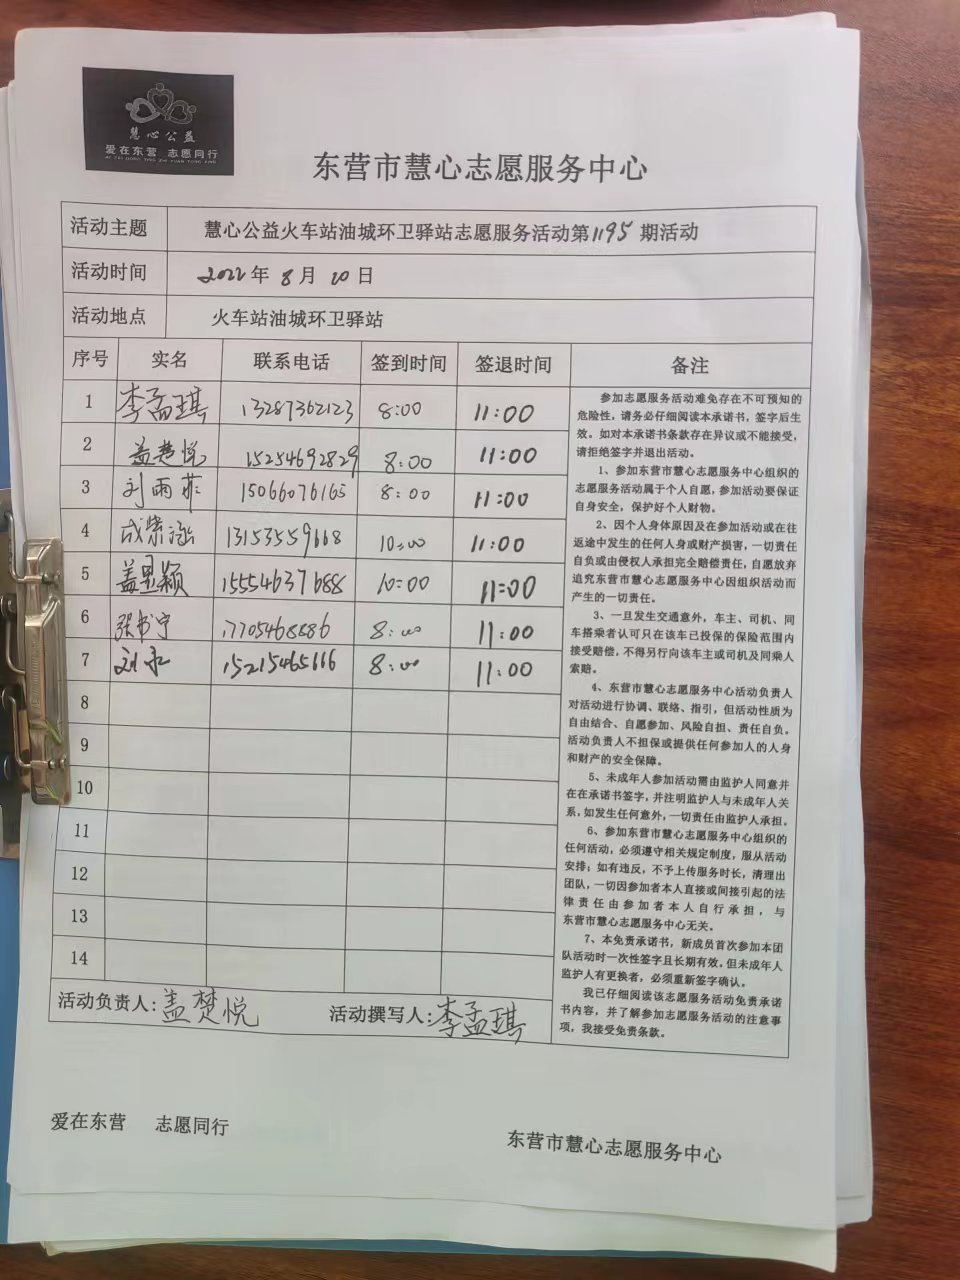 慧心公益
爱在东营 志愿同行
东营市慧心志愿服务中心
活动主题 慧心公益火车站油城环卫驿站志愿服务活动第1195期活动
活动时间 2022年8月20日
活动地点 火车站油城环卫驿站
序号 实名 联系电话 签到时间 签退时间 备注
1 李孟琪 13287362123 8:00 11:00
2 盖楚悦 15254692829 8:00 11:00
3 刘雨菲 15066076165 8:00 11:00
4 成紫涵 13153559668 10:00 11:00
5 盖昱颖 15554637688 10:00 11:00
6 张书宁 17705468886 8:00 11:00
7 刘永 15215465666 8:00 11:00
8
9
10
11
12
13
14
参加志愿服务活动难免存在不可预知的
危险性，请务必仔细阅读本承诺书，签字后生
效。如对本承诺书条款存在异议或不能接受，
请拒绝签字并退出活动。
1、参加东营市慧心志愿服务中心组织的
志愿服务活动属于个人自愿，参加活动要保证
自身安全，保护好个人财物。
2、因个人身体原因及在参加活动或在往
返途中发生的任何人身或财产损害，一切责任
自负或由侵权人承担完全赔偿责任，自愿放弃
追究东营市慧心志愿服务中心因组织活动而
产生的一切责任。
3、一旦发生交通意外，车主、司机、同
车搭乘者认可只在该车已投保的保险范围内
接受赔偿，不得另行向该车主或司机及同乘人
索赔。
4、东营市慧心志愿服务中心活动负责人
对活动进行协调、联络、指引，但活动性质为
自由结合、自愿参加、风险自担、责任自负。
活动负责人不担保或提供任何参加人的人身
和财产的安全保障。
5、未成年人参加活动需由监护人同意并
在在承诺书签字，并注明监护人与未成年人关
系，如发生任何意外，一切责任由监护人承担。
6、参加东营市慧心志愿服务中心组织的
任何活动，必须遵守相关规定制度，服从活动
安排；如有违反，不予上传服务时长，清理出
团队，一切因参加者本人直接或间接引起的法
律责任由参加者本人自行承担，与
东营市慧心志愿服务中心无关。
7、本免责承诺书，新成员首次参加本团
队活动时一次性签字且长期有效。但未成年人
监护人有更换者，必须重新签字确认。
我已仔细阅读该志愿服务活动免责承诺
书内容，并了解参加志愿服务活动的注意事
项，我接受免责条款。
活动负责人：盖楚悦 活动撰写人：李孟琪
爱在东营 志愿同行
东营市慧心志愿服务中心